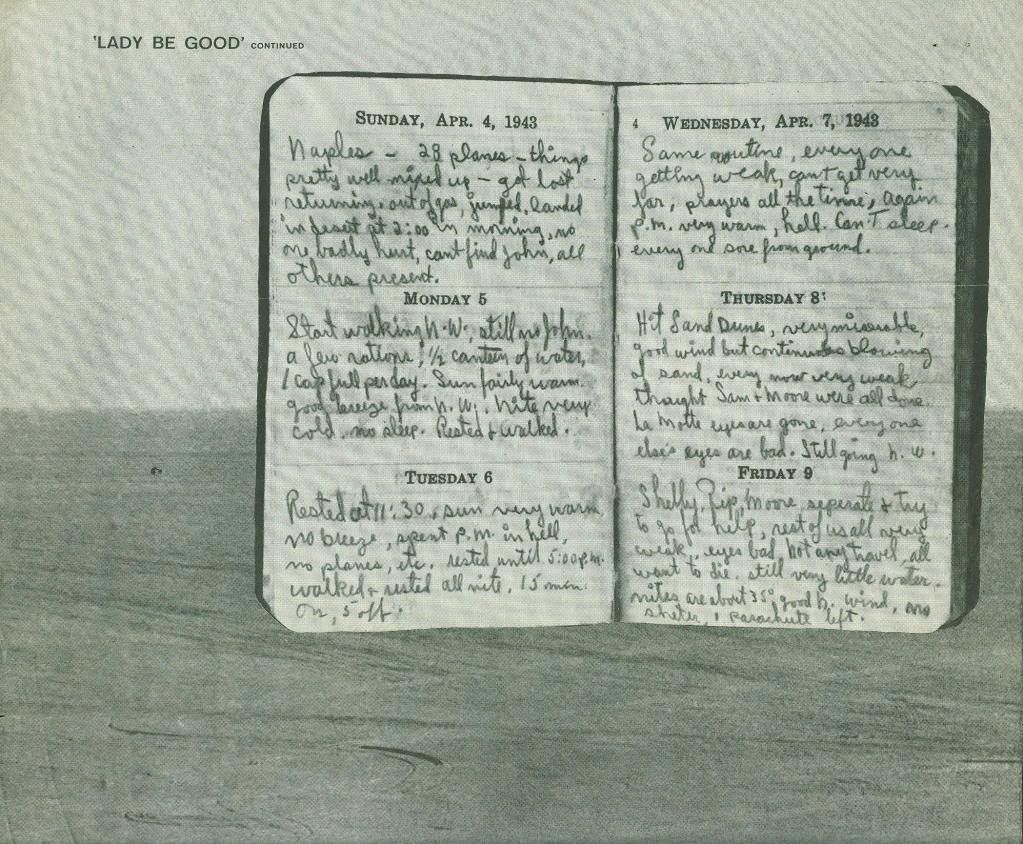 'LADY BE GOOD' CONTINUED
SUNDAY, APR. 4, 1943
Naples – 28 planes – things
pretty well mixed up – got lost
returning, out of gas, jumped, landed
in desert at 2:00 in morning, no
one badly hurt, cant find John, all
others present.
MONDAY 5
Start walking N.W., still no John.
a few rations, 1/2 canteen of water,
1 cap full per day. Sun fairly warm.
good breeze from N.W. Nite very
cold. no sleep. Rested & walked.
TUESDAY 6
Rested at 11:30, sun very warm
no breeze, spent P.M. in hell,
no planes, etc. rested until 5:00 p.m.
walked & rested all nite, 15 min
on, 5 off.
4 WEDNESDAY, APR. 7, 1943
Same routine, every one
getting weak, cant get very
far, prayers all the time, again
p.m. very warm, hell. Can't sleep.
every one sore from ground.
THURSDAY 8
Hit Sand Dunes, very miserable,
good wind but continuous blowing
of sand, every now very weak,
thought Sam & Moore were all done.
La Motte eyes are gone, every one
else's eyes are bad. Still going N.W.
FRIDAY 9
Shelly, Rip, Moore seperate & try
to go for help, rest of us all very
weak, eyes bad, not any travel, all
want to die. still very little water.
nites are about 35° good N. wind, no
shelter, 1 parachute left.